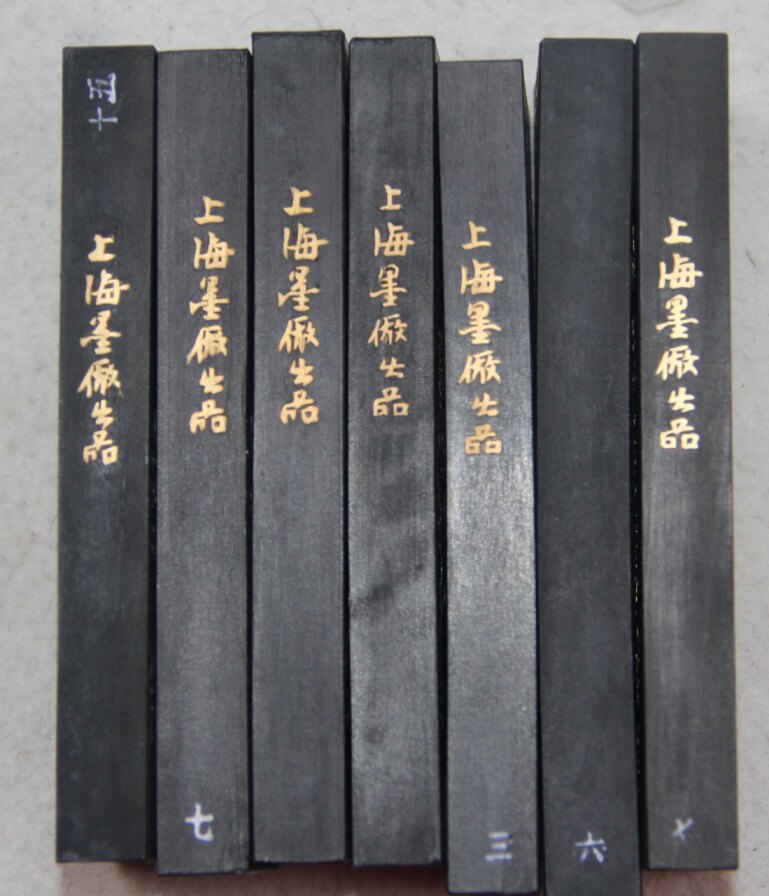 上海墨厰出品
上海墨厰出品
七
上海墨厰出品
上海墨厰出品
上海墨厰出品
三
六
上海墨厰出品